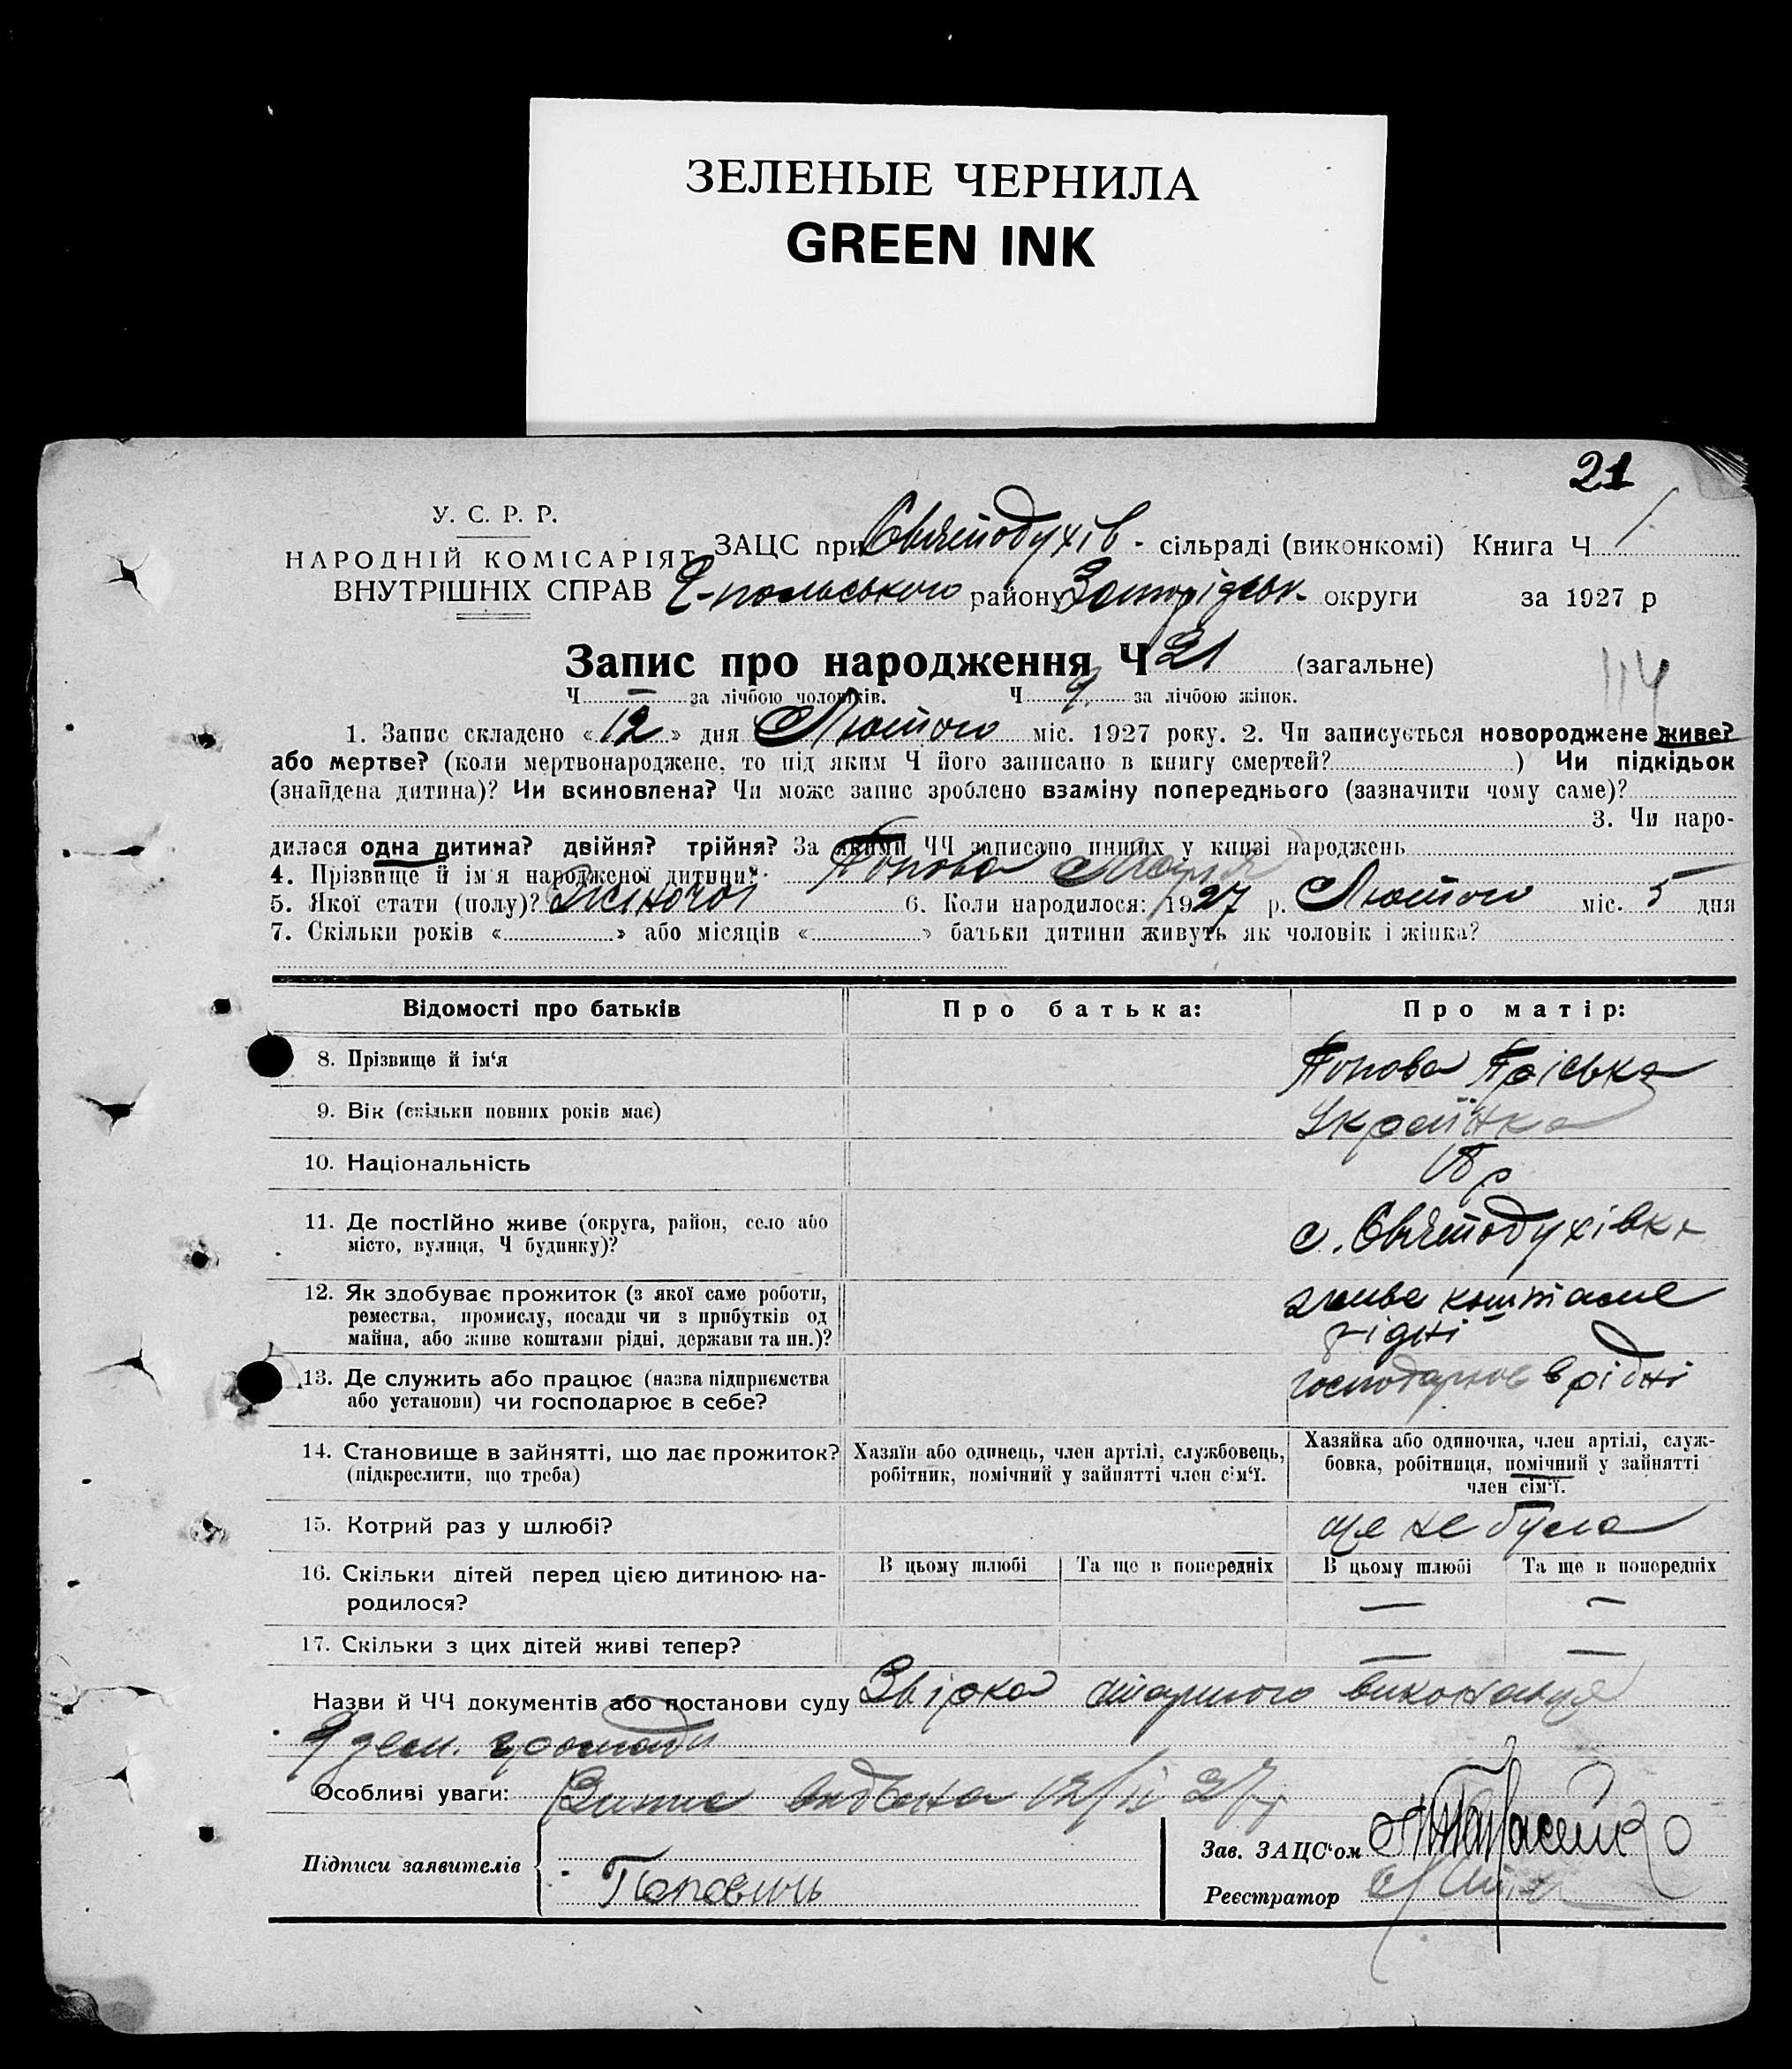 ЗЕЛЕНЫЕ ЧЕРНИЛА
GREEN INK
21
У. С. Р. Р.
НАРОДНІЙ КОМІСАРІЯТ
ВНУТРІШНІХ СПРАВ
ЗАЦС при Святодухів - сільраді (виконкомі) Книга Ч 1
Ч-польського району Запорізьк. округи за 1927 р
Запис про народження Ч 21 (загальне)
114
Ч — за лічбою чоловіків. Ч 9 за лічбою жінок.
1. Запис складено « 12 » дня Лютого міс. 1927 року. 2. Чи записується новороджене живе?
або мертве? (коли мертвонароджене, то під яким Ч його записано в книгу смертей? ) Чи підкідьок
(знайдена дитина)? Чи всиновлена? Чи може запис зроблено взаміну попереднього (зазначити чому саме)?
3. Чи наро-
дилася одна дитина? двійня? трійня? За якими ЧЧ записано инших у книзі народжень
4. Прізвище й ім'я народженої дитини? Попова Марія
5. Якої стати (полу)? Жіночої 6. Коли народилося: 1927 р. Лютого міс. 5 дня
7. Скільки років « » або місяців « » батьки дитини живуть як чоловік і жінка?
Відомості про батьків Про батька: Про матір:
8. Прізвище й ім'я Попова Пріська
9. Вік (скільки повних років має) Українка
10. Національність 18 р
11. Де постійно живе (округа, район, село або
місто, вулиця, Ч будинку)? с. Святодухівка
12. Як здобуває прожиток (з якої саме роботи,
ремества, промислу, посади чи з прибутків од
майна, або живе коштами рідні, держави та ин.)? живе коштаме
рідні
13. Де служить або працює (назва підприємства
або установи) чи господарює в себе? господарює в рідні
14. Становище в зайнятті, що дає прожиток?
(підкреслити, що треба)
Хазяїн або одинець, член артілі, службовець,
робітник, помічний у зайнятті член сім'ї.
Хазяйка або одиночка, член артілі, служ-
бовка, робітниця, помічний у зайнятті
член сім'ї.
15. Котрий раз у шлюбі? ще не була
16. Скільки дітей перед цією дитиною на-
родилося?
В цьому шлюбі Та ще в попередніх В цьому шлюбі Та ще в попередніх
— —
17. Скільки з цих дітей живі тепер? — —
Назви й ЧЧ документів або постанови суду Звірка старшого виконавця
9 десн. громади
Особливі уваги: видана 12/II 27
Підписи заявителів Попович
Зав. ЗАЦС'ом
Реєстратор